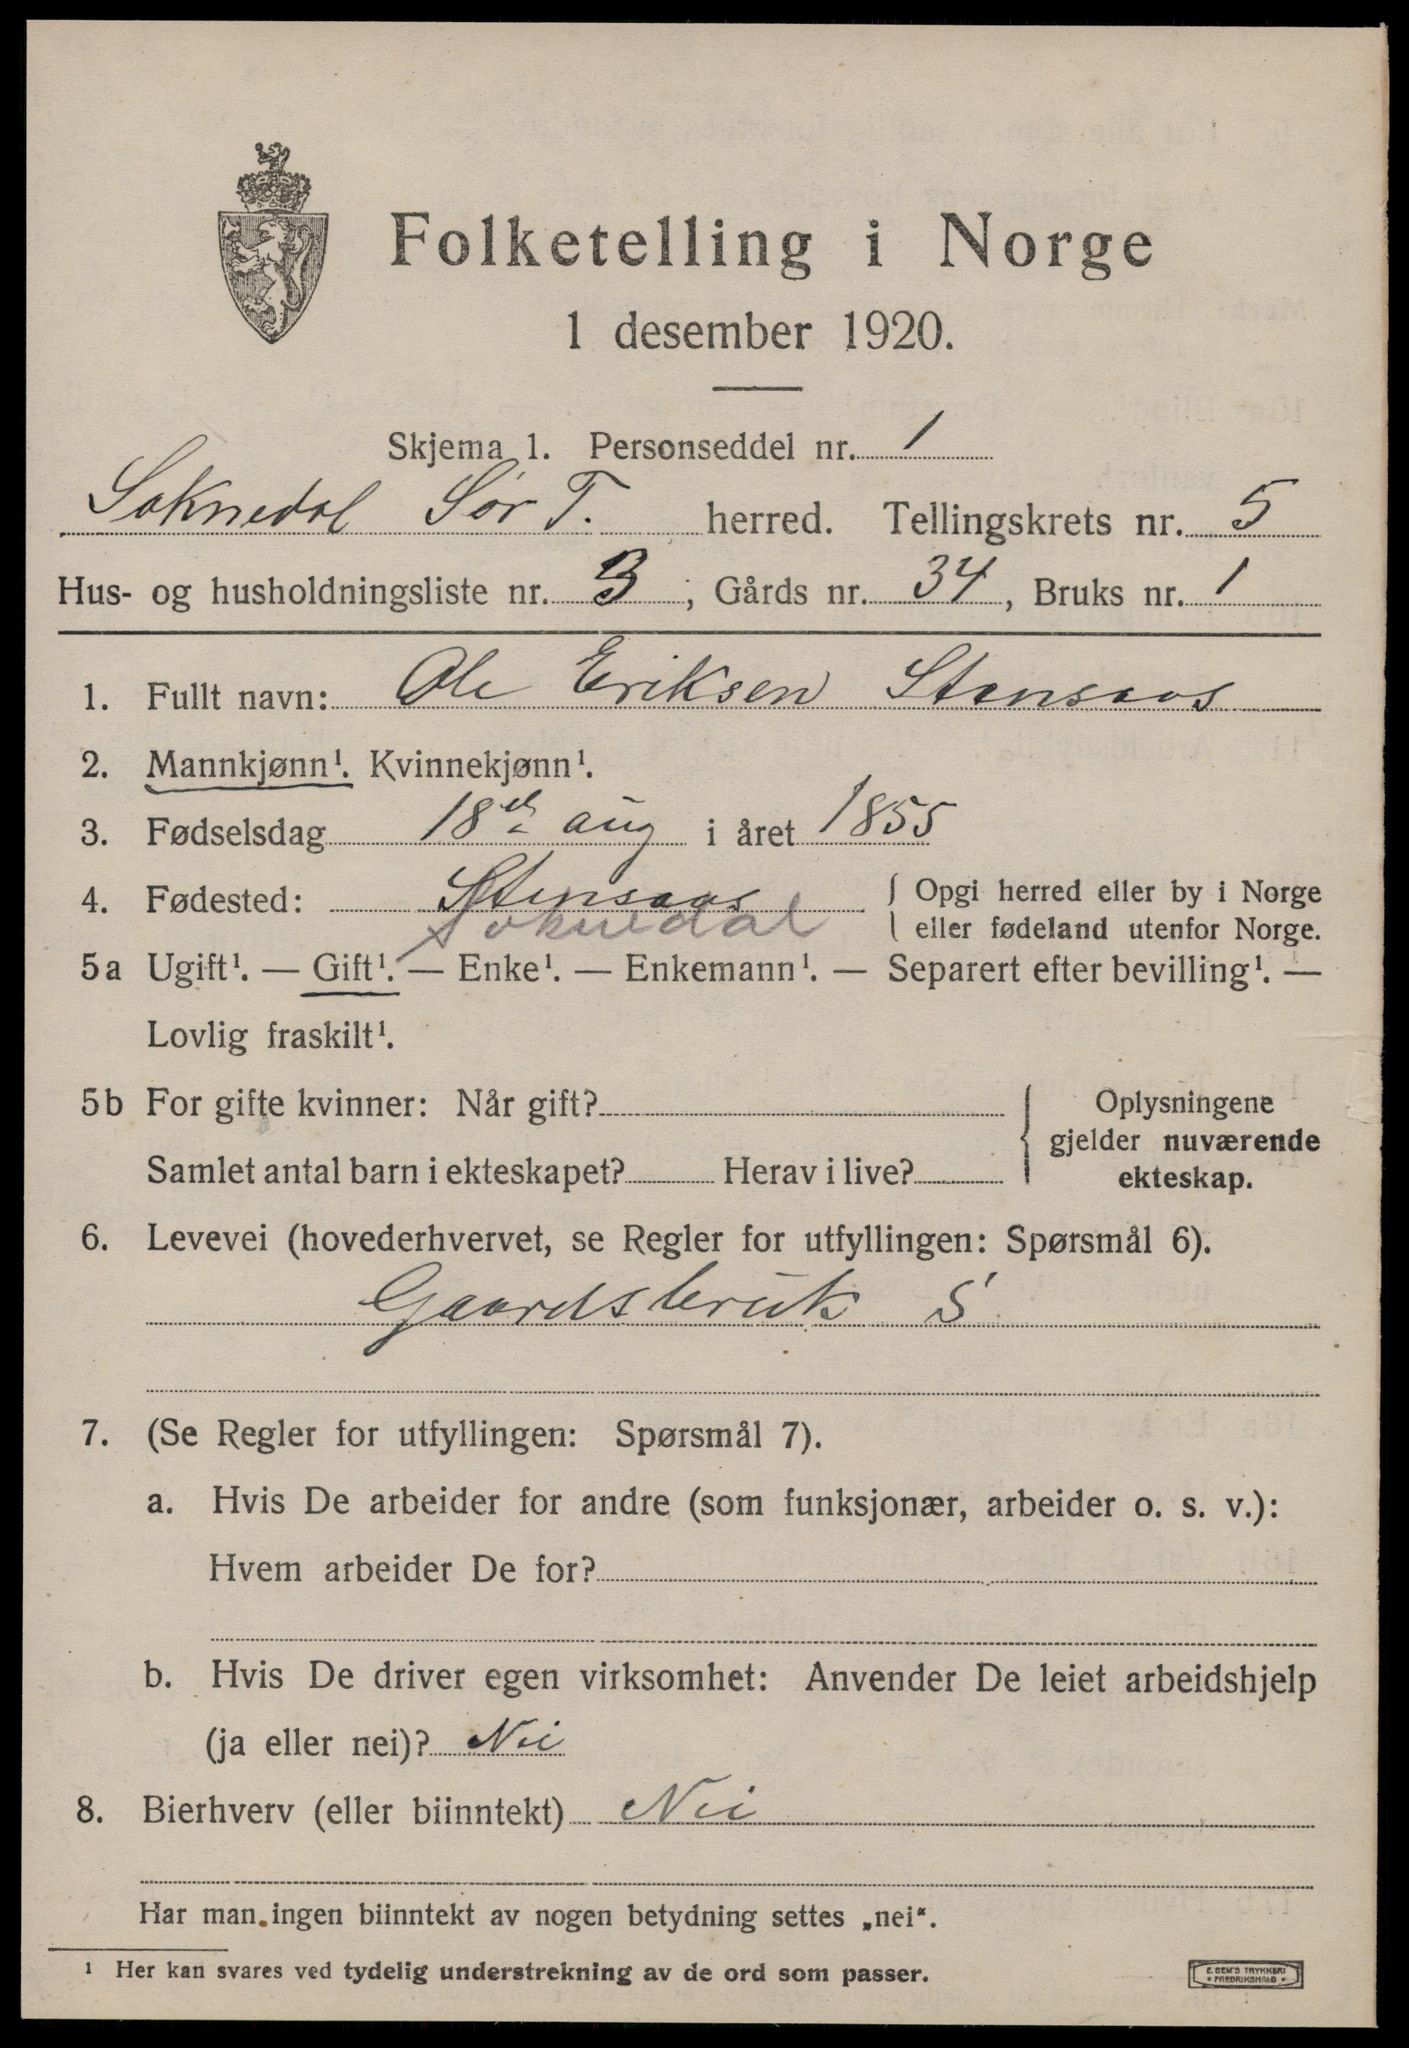 Folketelling i Norge
1 desember 1920.
Skjema 1. Personseddel nr. 1
Soknedal Sør T. herred. Tellingskrets nr. 5
Hus- og husholdningsliste nr. 3; Gårds nr. 34, Bruks nr. 1
1. Fullt navn: Ole Eriksen Stensaas
2. Mannkjønn¹. Kvinnekjønn¹.
3. Fødselsdag 18de aug i året 1855
4. Fødested: Stensaas { Opgi herred eller by i Norge
Soknedal eller fødeland utenfor Norge.
5a Ugift¹. — Gift¹. — Enke¹. — Enkemann¹. — Separert efter bevilling¹. —
Lovlig fraskilt¹.
5b For gifte kvinner: Når gift? { Oplysningene
gjelder nuværende
Samlet antal barn i ekteskapet? Herav i live? ekteskap.
6. Levevei (hovederhvervet, se Regler for utfyllingen: Spørsmål 6).
Gaardsbruk S
7. (Se Regler for utfyllingen: Spørsmål 7).
a. Hvis De arbeider for andre (som funksjonær, arbeider o. s. v.):
Hvem arbeider De for?
b. Hvis De driver egen virksomhet: Anvender De leiet arbeidshjelp
(ja eller nei)? Nei
8. Bierhverv (eller biinntekt) Nei
Har man ingen biinntekt av nogen betydning settes „nei“.
¹ Her kan svares ved tydelig understrekning av de ord som passer.
E. SEM'S TRYKKERI
• FREDRIKSHALD •